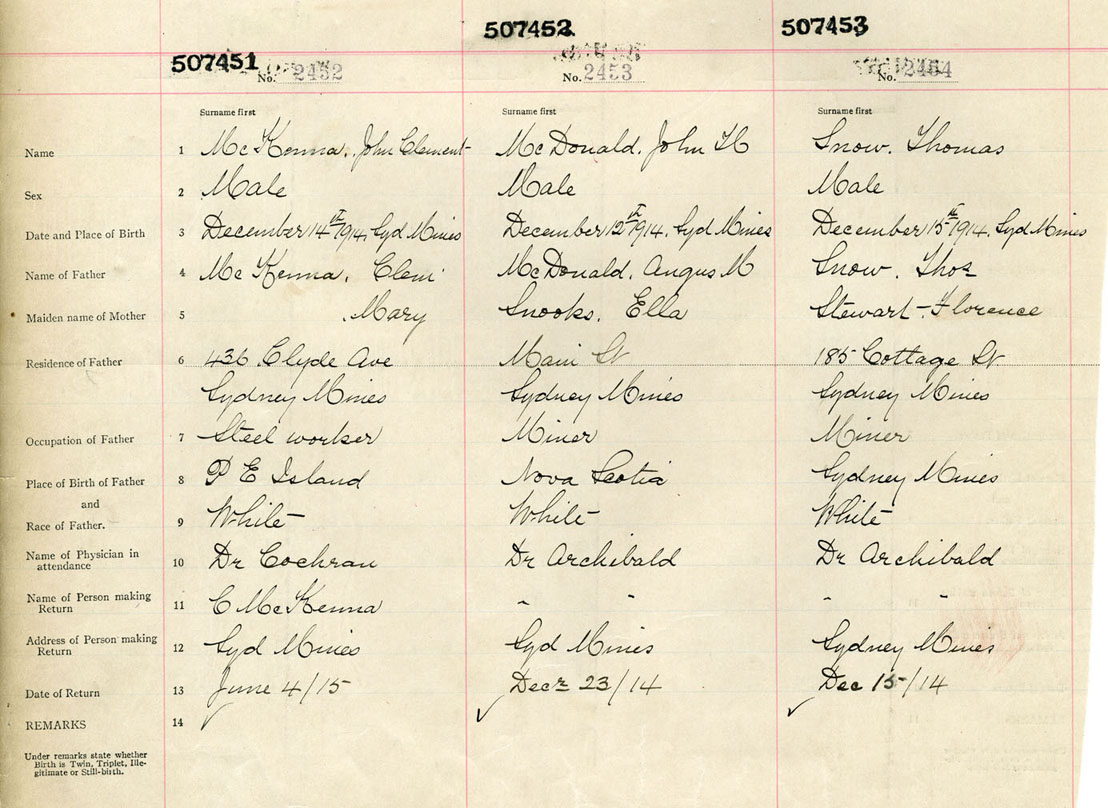 507451 507452 507453
No. 2452 No. 2453 No. 2454
Surname first Surname first Surname first
Name 1 McKenna, John Clement McDonald, John H Snow, Thomas
Sex 2 Male Male Male
Date and Place of Birth 3 December 14th 1914, Syd Mines December 12th 1914, Syd Mines December 15th 1914, Syd Mines
Name of Father 4 McKenna, Clem McDonald, Angus M Snow, Thos
Maiden name of Mother 5 , Mary Snooks, Ella Stewart - Florence
Residence of Father 6 436 Clyde Ave Main St 185 Cottage St
Sydney Mines Sydney Mines Sydney Mines
Occupation of Father 7 Steel worker Miner Miner
Place of Birth of Father 8 P E Island Nova Scotia Sydney Mines
and
Race of Father. 9 White White White
Name of Physician in
attendance 10 Dr Cochran Dr Archibald Dr Archibald
Name of Person making
Return 11 C McKenna " " " "
Address of Person making
Return 12 Syd Mines Syd Mines Sydney Mines
Date of Return 13 June 4/15 Decr 23/14 Dec 15/14
REMARKS 14
Under remarks state whether
Birth is Twin, Triplet, Ille-
gitimate or Still-birth.